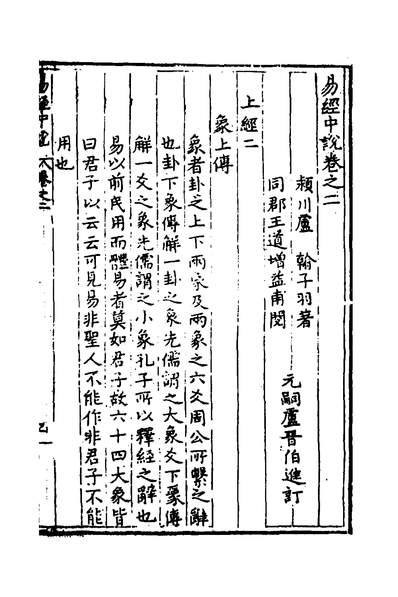 易經中說卷之二
潁川盧　翰子羽著
同郡王道增益甫閱
元嗣盧晉伯進訂
上經二
象上傳
象者卦之上下兩象及兩象之六爻周公所繫之辭
也卦下象傳解一卦之象先儒謂之大象爻下象傳
解一爻之象先儒謂之小象孔子所以釋經之辭也
易以前民用而體易者莫如君子故六十四大象皆
曰君子以云云可見易非聖人不能作非君子不能
用也
易經中說　卷之二